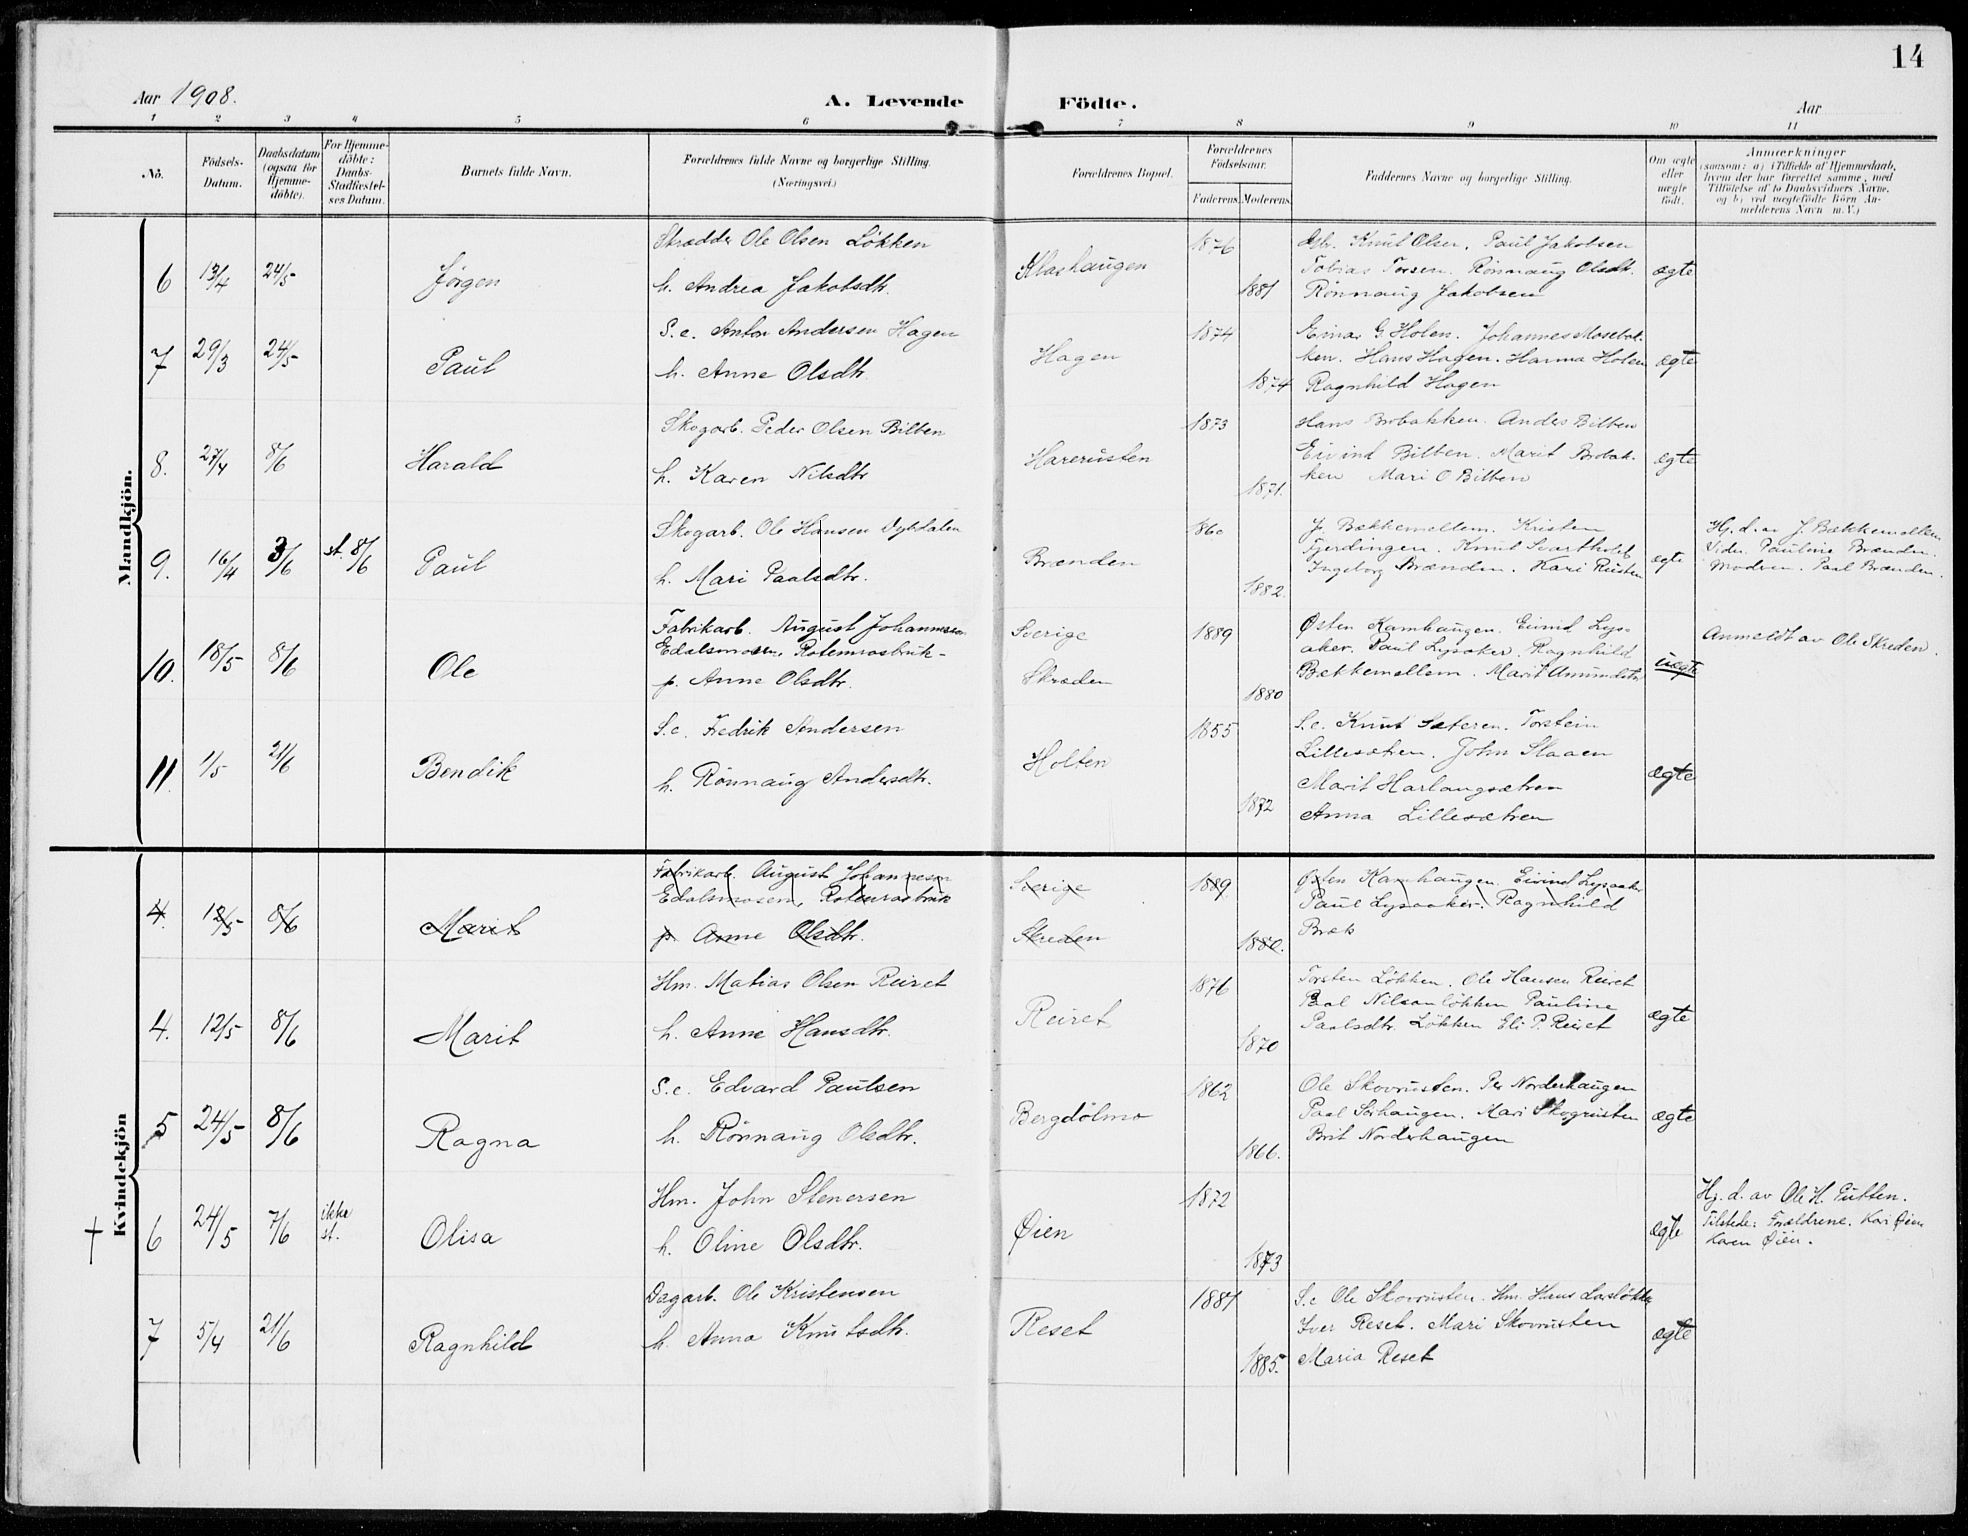 14
Aar 1908.
A. Levende Födte.
Aar
1 2 3 4 5 6 7 8 9 10 11
No.
Födsels-Datum.
Daabsdatum (ogsaa for Hjemme-döbte).
For Hjemme-döbte: Daabs-Stadfæstel-ses Datum.
Barnets fulde Navn.
Forældrenes fulde Navne og borgerlige Stilling. (Næringsvei.)
Forældrenes Bopæl.
Forældrenes Födselsaar.
Faderens. Moderens.
Faddernes Navne og borgerlige Stilling.
Om ægte eller uægte födt.
Anmærkninger
(saasom: a) i Tilfælde af Hjemmedaab,
hvem der har forrettet samme, med
Tilföielse af to Daabsvidners Navne,
og b) ved uægtefödte Börn An-
melderens Navn m. V.)
Mandkjön.
6 13/4 24/5 Jørgen
Skrædder Ole Olsen Løkken
h. Andrea Jakobsdtr.
Klashaugen
1876
1881
Knut Olsen. Paul Jakobsen
Tobias Torsen. Rönnaug Olsdtr.
Rönnaug Jakobsen
ægte
7 29/3 24/5 Paul
S.e. Anton Andersen Hagen
h. Anne Olsdtr.
Hagen
1874
1874
Einar G Holen. Johannes Mosebak-
ken. Hans Hagen. Hanna Holen
Ragnhild Hagen
ægte
8. 27/4 8/6 Harald
Skogarb. Peder Olsen Bilben
h. Karen Nilsdtr
Harerusten
1873
1871.
Hans Brobakken. Anders Bilben
Eivind Bilben. Marit Brobak-
ken Mari O Bilben
ægte
9. 16/4 3/6 st. 8/6 Paul
Skogarb. Ole Hansen Dybdalen
h. Mari Paalsdtr.
Brænden
860
1882.
J. Bækkemellem. Kristen
Fjerdingen. Knut Svartholst
Ingeborg Brænden. Kari Rusten
ægte
Hj. d. av J. Bækkemellem
Vidn. Pauline Brænden.
Modren. Paal Brænden.
10. 18/5 8/6 Ole
Fabrikarb. August Johannessen
Edalsmosen, Rotemrosbruk-
p. Anne Olsdtr.
Sverige
Skræden
1889
1880
Østen Kamhaugen. Eivind Lys-
aker. Paul Lysaker. Ragnhild
Bækkemellem. Marit Amundsdtr
uægte
Anmeldt av Ole Skreden.
11. 1/5 21/6 Bendik
S.e. Fredrik Andersen
h. Rönnaug Andersdtr.
Holten
1855
1872
S.e. Knut Sæteren. Torstein
Lillesætren. John Slaaen
Marit Harlaugsætren
Anna Lillesætren
ægte
Kvindekjön
4. 12/5 8/6 Marit
Fabrikarb. August Johannesen
Edalsmosen, Rotemrosbruk
p. Anne Olsdtr.
Sverige
Skreden
1889
1880.
Østen Kamhaugen. Eivind Lysaaker
Paul Lysaaker. Ragnhild
Bræk
4. 12/5 8/6 Marit
Hm. Matias Olsen Reiret
h. Anne Hansdtr.
Reiret
1876
1870
Torsten Løkken. Ole Hansen Reiret
Paal Nilsonløkken Pauline
Paalsdtr. Løkken Eli P. Reiret
ægte
5 24/5 8/6 Ragna
S.e. Edvard Paulsen
h. Rönnaug Olsdtr.
Bergdölmo
1862
1866.
Ole Skovrusten. Per Norderhaugen
Paal Sørhaugen. Mari Skogrusten
Brit Norderhaugen
ægte
† 6 24/5 7/6 ikke st. Olisa
Hm. John Stenersen
h. Oline Olsdtr.
Øien
1872
1873
ægte
Hj. d. av Ole H. Putten.
Tilstede: Forældrene. Kari Øien
Karen Øien.
7 5/4 21/6 Ragnhild
Dagarb. Ole Kristensen
h. Anna Knutsdtr.
Reset
1881
1885.
S.e Ole Skovrusten. Hm. Hans Larsløkken
Iver Reset. Mari Skovrusten
Maria Reset
ægte